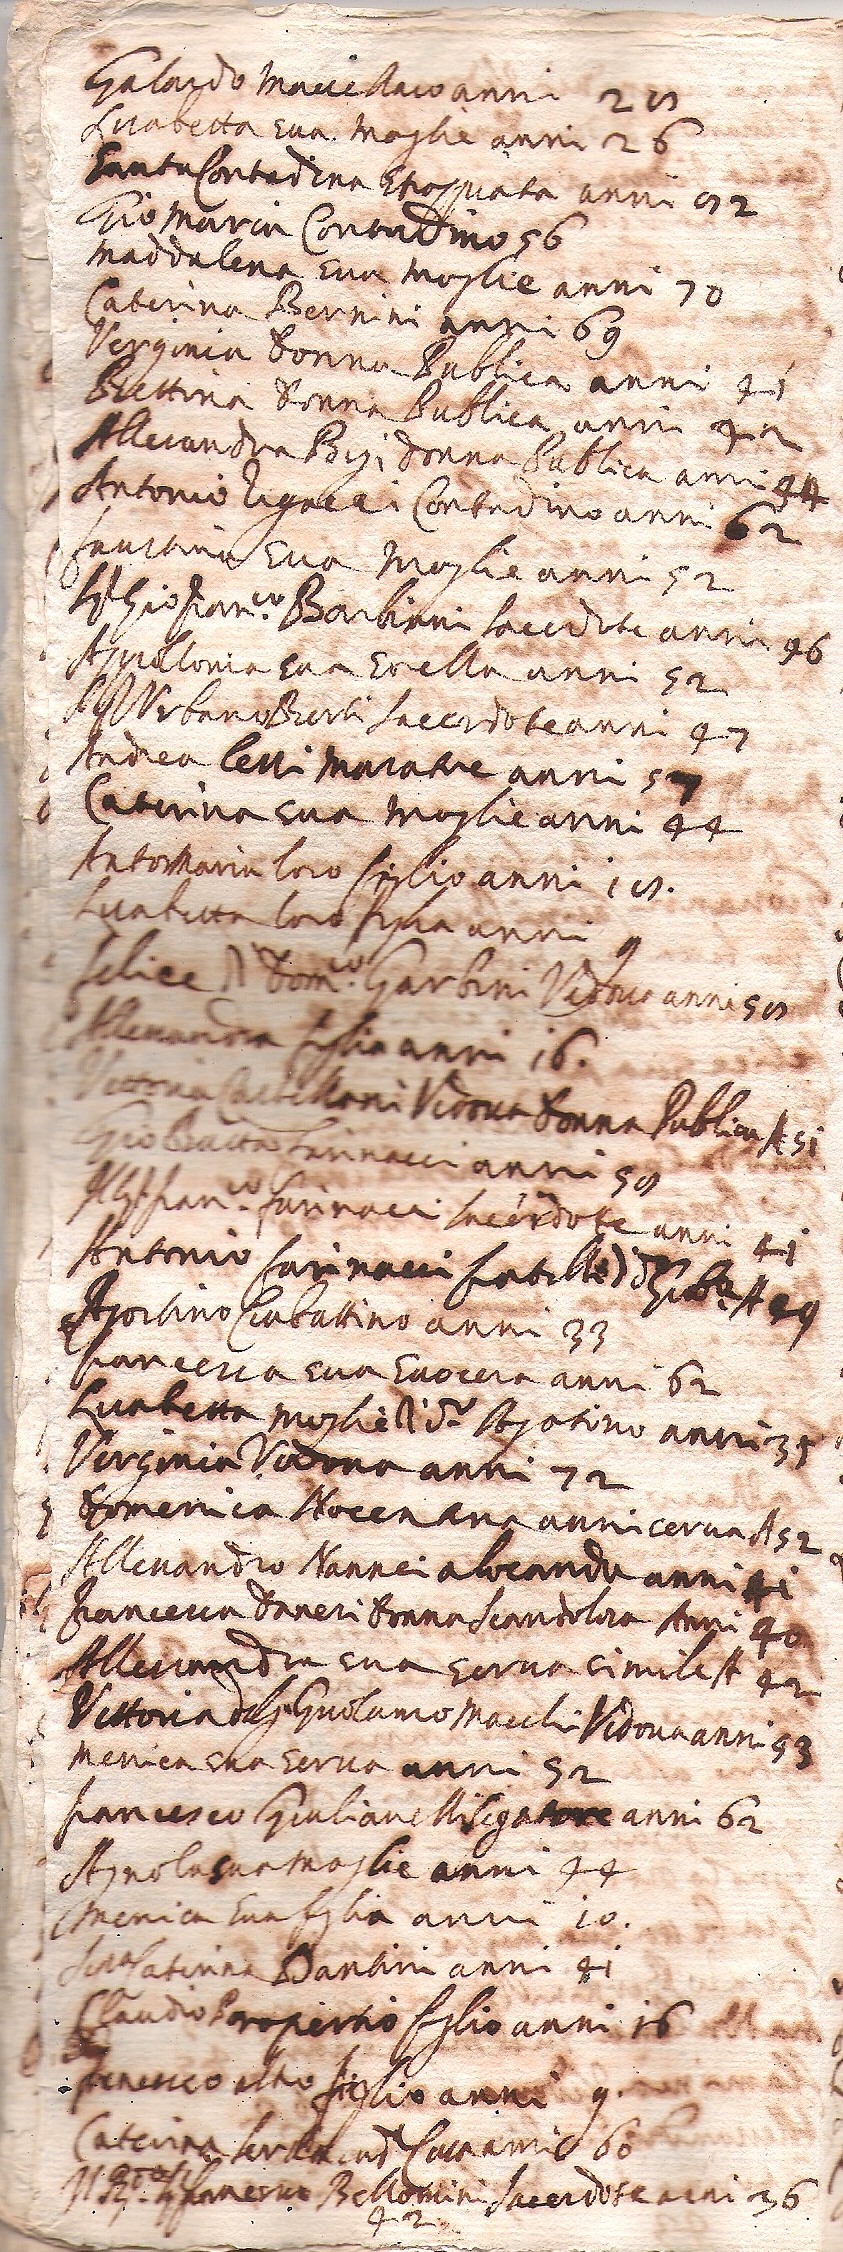 Galardo Macellaro anni 25
Lisabetta sua moglie anni 26
Santa Contadina anni 52
Gio Maria Contadino 56
Maddalena sua moglie anni 70
Caterina Bernini anni 69
Verginia donna Publica anni 41
Bettina donna Publica anni 42
Allesandra Bigi donna Publica anni 44
Antonio Contadino anni 62
faustina sua Moglie anni 52
Sr Gio fran.co Barbieni Sacerdote anni 46
Apollonia sua sorella anni 52
Sr Urbano Berti Sacerdote anni 47
Andrea muratore anni 57
Caterina sua moglie anni 44
Anto Maria loro figlio anni 15.
Lisabetta loro figlia anni 9
felice di Dom.co Garbini Vedova anni 55
Allesandra figlia anni 16.
Vittoria Castellani Vidova donna Publica A 51
Gio Batta farinacci anni 55
Il Sr fran.co farinacci Sacerdote anni 41
Antonio farinacci fratello di do Gio Ba A 49
Agostino Ciabattino anni 33
francesca sua suocera anni 62
Lisabetta moglie di do Agostino anni 35
Verginia Vidova anni 72
Domenica anni serva A 52
Allesandro Nannei alocanda anni 41
francesca donna Scandolosa Anni 40
Allesandra sua serva simile A 42
Vittoria del Sr Girolamo Macchi Vidova anni 53
Menica sua serva anni 52
francesco Giulianelli Segatore anni 62
Agnola sua moglie anni 44
Menica sua figlia anni 10.
Caterina Bantini anni 41
Claudio Propertio figlio anni 16
francesco altro figlio anni 9.
Caterina serva 60
Il Sr francesco Bellomini Sacerdote anni 36
42